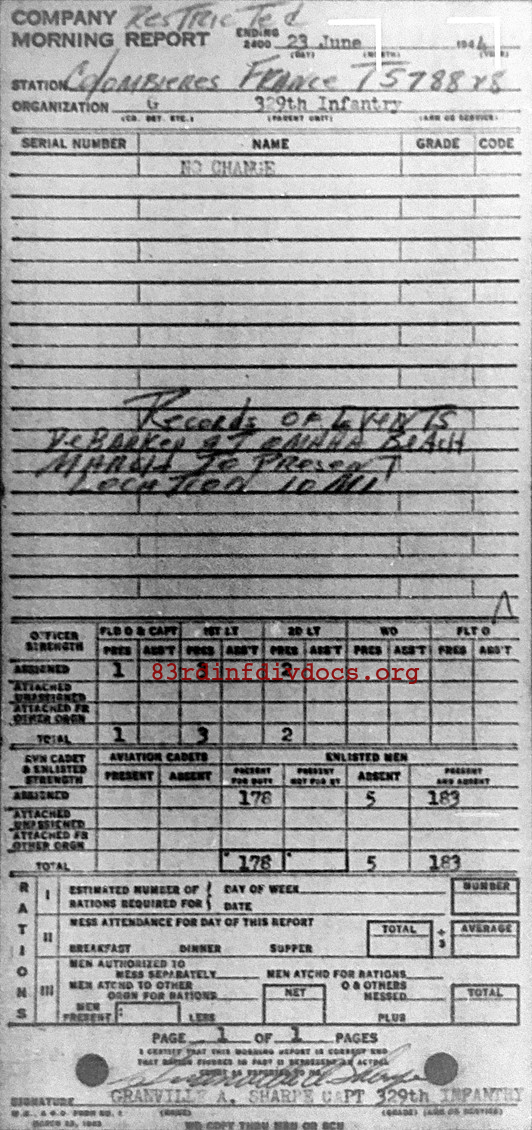 COMPANY Restricted
MORNING REPORT ENDING 2400 23 June 1944
(DAY) (MONTH) (YEAR)
STATION Colombieres France T578828
ORGANIZATION G 329th Infantry
(CO. DET. ETC.) (PARENT UNIT) (ARM OR SERVICE)
SERIAL NUMBER NAME GRADE CODE
NO CHANGE
Records OF EVENTS
DeBARKED AT OMAHA BeACH
MARCH TO PReSENT
LOCATION 10 MI
OFFICER STRENGTH FLD O & CAPT 1ST LT 2D LT WO FLT O
PRES ABS'T PRES ABS'T PRES ABS'T PRES ABS'T PRES ABS'T
ASSIGNED 1 3 2
83rdinfdivdocs.org
ATTACHED UNASSIGNED
ATTACHED FR OTHER ORGN
TOTAL 1 3 2
AVN CADET & ENLISTED STRENGTH AVIATION CADETS ENLISTED MEN
PRESENT ABSENT PRESENT FOR DUTY PRESENT NOT FOR DY ABSENT PRESENT AND ABSENT
ASSIGNED 178 5 183
ATTACHED UNASSIGNED
ATTACHED FR OTHER ORGN
TOTAL 178 5 183
RATIONS
I ESTIMATED NUMBER OF RATIONS REQUIRED FOR { DAY OF WEEK DATE NUMBER
II MESS ATTENDANCE FOR DAY OF THIS REPORT TOTAL ÷ 3 AVERAGE
BREAKFAST DINNER SUPPER
III MEN AUTHORIZED TO MESS SEPARATELY MEN ATCHD FOR RATIONS
MEN ATCHD TO OTHER ORGN FOR RATIONS NET O & OTHERS MESSED TOTAL
MEN PRESENT LESS PLUS
PAGE 1 OF 1 PAGES
I CERTIFY THAT THIS MORNING REPORT IS CORRECT AND
Granville A Sharpe
SIGNATURE GRANVILLE A. SHARPE CAPT 329th INFANTRY
W.D., A.G.O. FORM NO. 1 (NAME) (GRADE) (ARM OR SERVICE)
MARCH 23, 1943